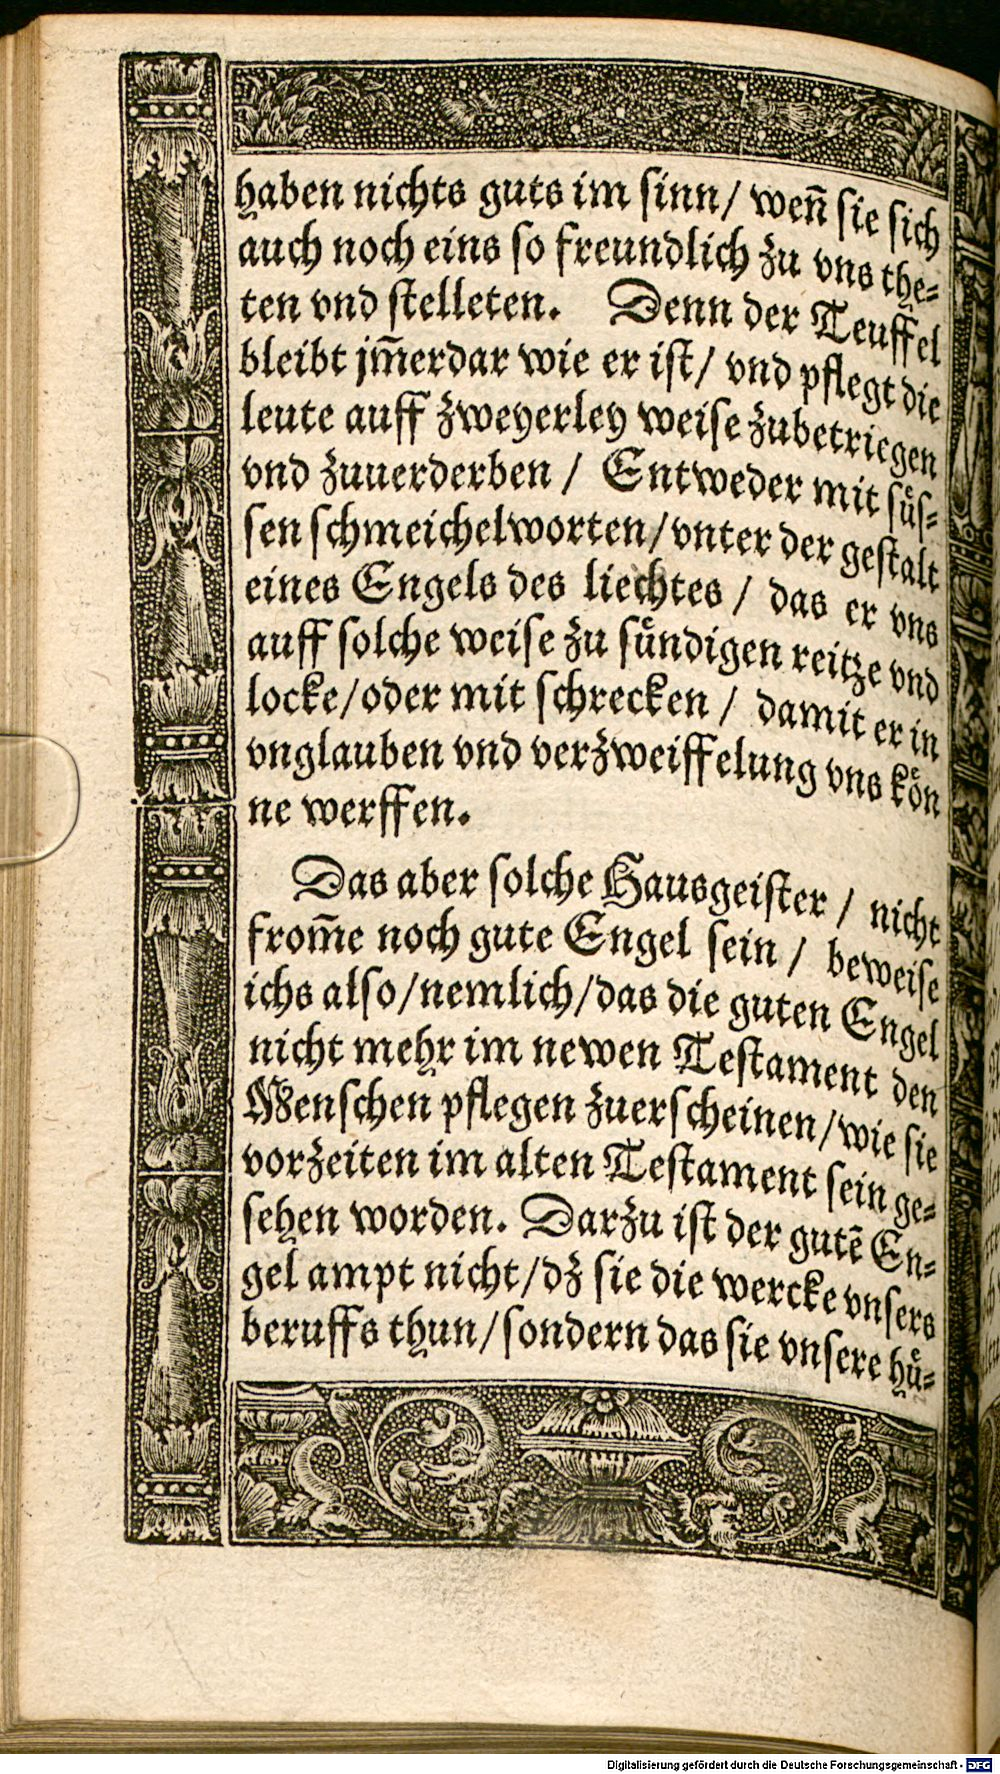 haben nichts guts im sinn/ weñ sie sich
auch noch eins so freundlich zu vns the⸗
ten vnd stelleten. Denn der Teuffel
bleibt jm̃erdar wie er ist/ vnd pflegt die
leute auff zweyerley weise zubetriegen
vnd zuuerderben / Entweder mit süs⸗
sen schmeichelworten/vnter der gestalt
eines Engels des liechtes / das er vns
auff solche weise zu sündigen reitze vnd
locke/oder mit schrecken / damit er in
vnglauben vnd verzweiffelung vns kön
ne werffen.
Das aber solche Hausgeister / nicht
from̃e noch gute Engel sein / beweise
ichs also/nemlich/das die guten Engel
nicht mehr im newen Testament den
Menschen pflegen zuerscheinen/wie sie
vorzeiten im alten Testament sein ge⸗
sehen worden. Darzu ist der gutẽ En⸗
gel ampt nicht/dz sie die wercke vnsers
beruffs thun/sondern das sie vnsere hü⸗
Digitalisierung gefördert durch die Deutsche Forschungsgemeinschaft - DFG